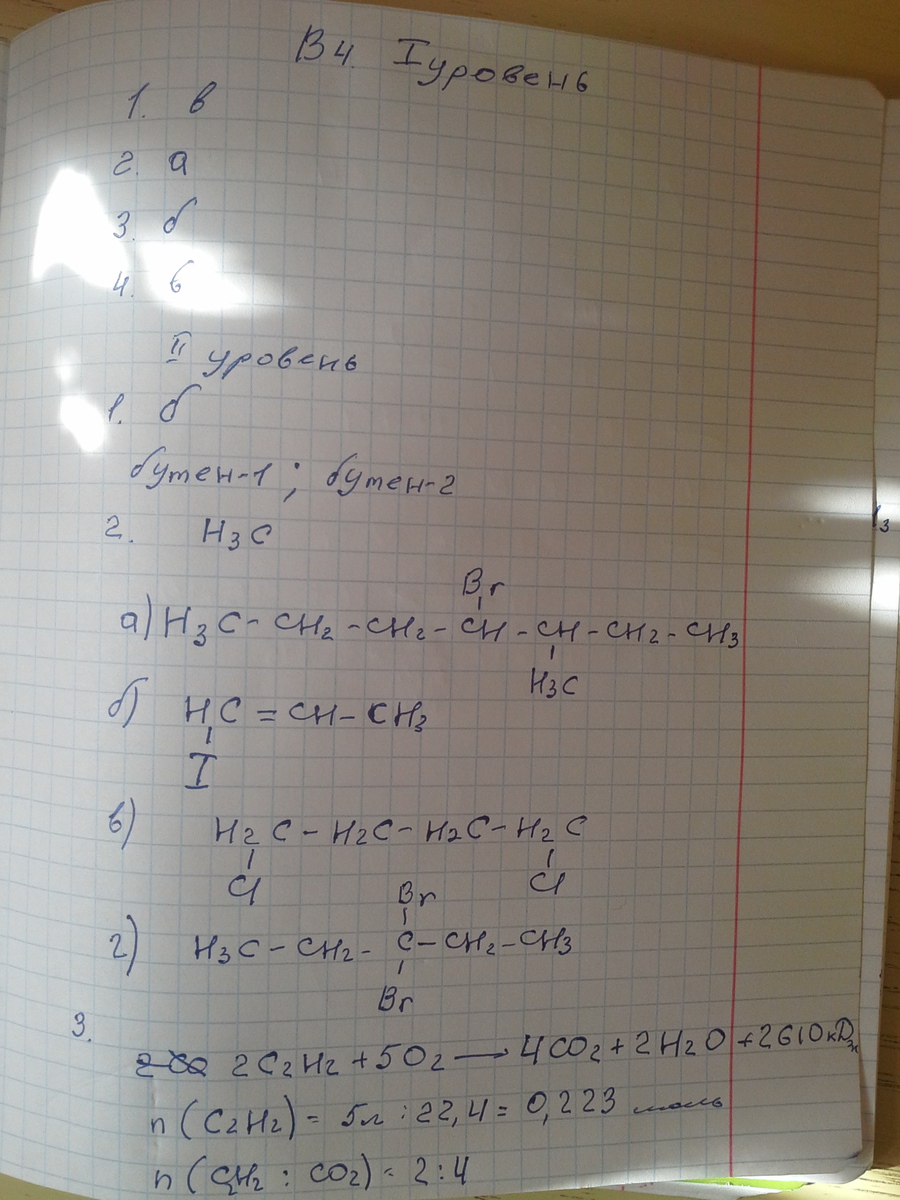 В4. I уровень
1. в
2. а
3. б
4. в
II уровень
1. б
бутен-1 ; бутен-2
2. H3C
Br
а) H3C - CH2 - CH2 - CH - CH - CH2 - CH3
H3C
б) HC = CH - CH3
I
в) H2C - H2C - H2C - H2C
Cl Cl
Br
г) H3C - CH2 - C - CH2 - CH3
Br
3.
2C2H2 + 5O2 → 4CO2 + 2H2O + 2610 кДж
n (C2H2) = 5л : 22,4 = 0,223 моль
n (C2H2 : CO2) = 2:4